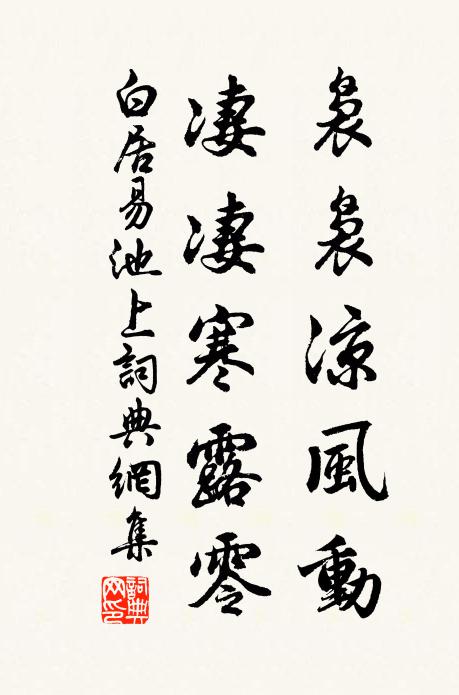 裊裊涼風動
凄凄寒露零
白居易池上詞典網集
詞典網印